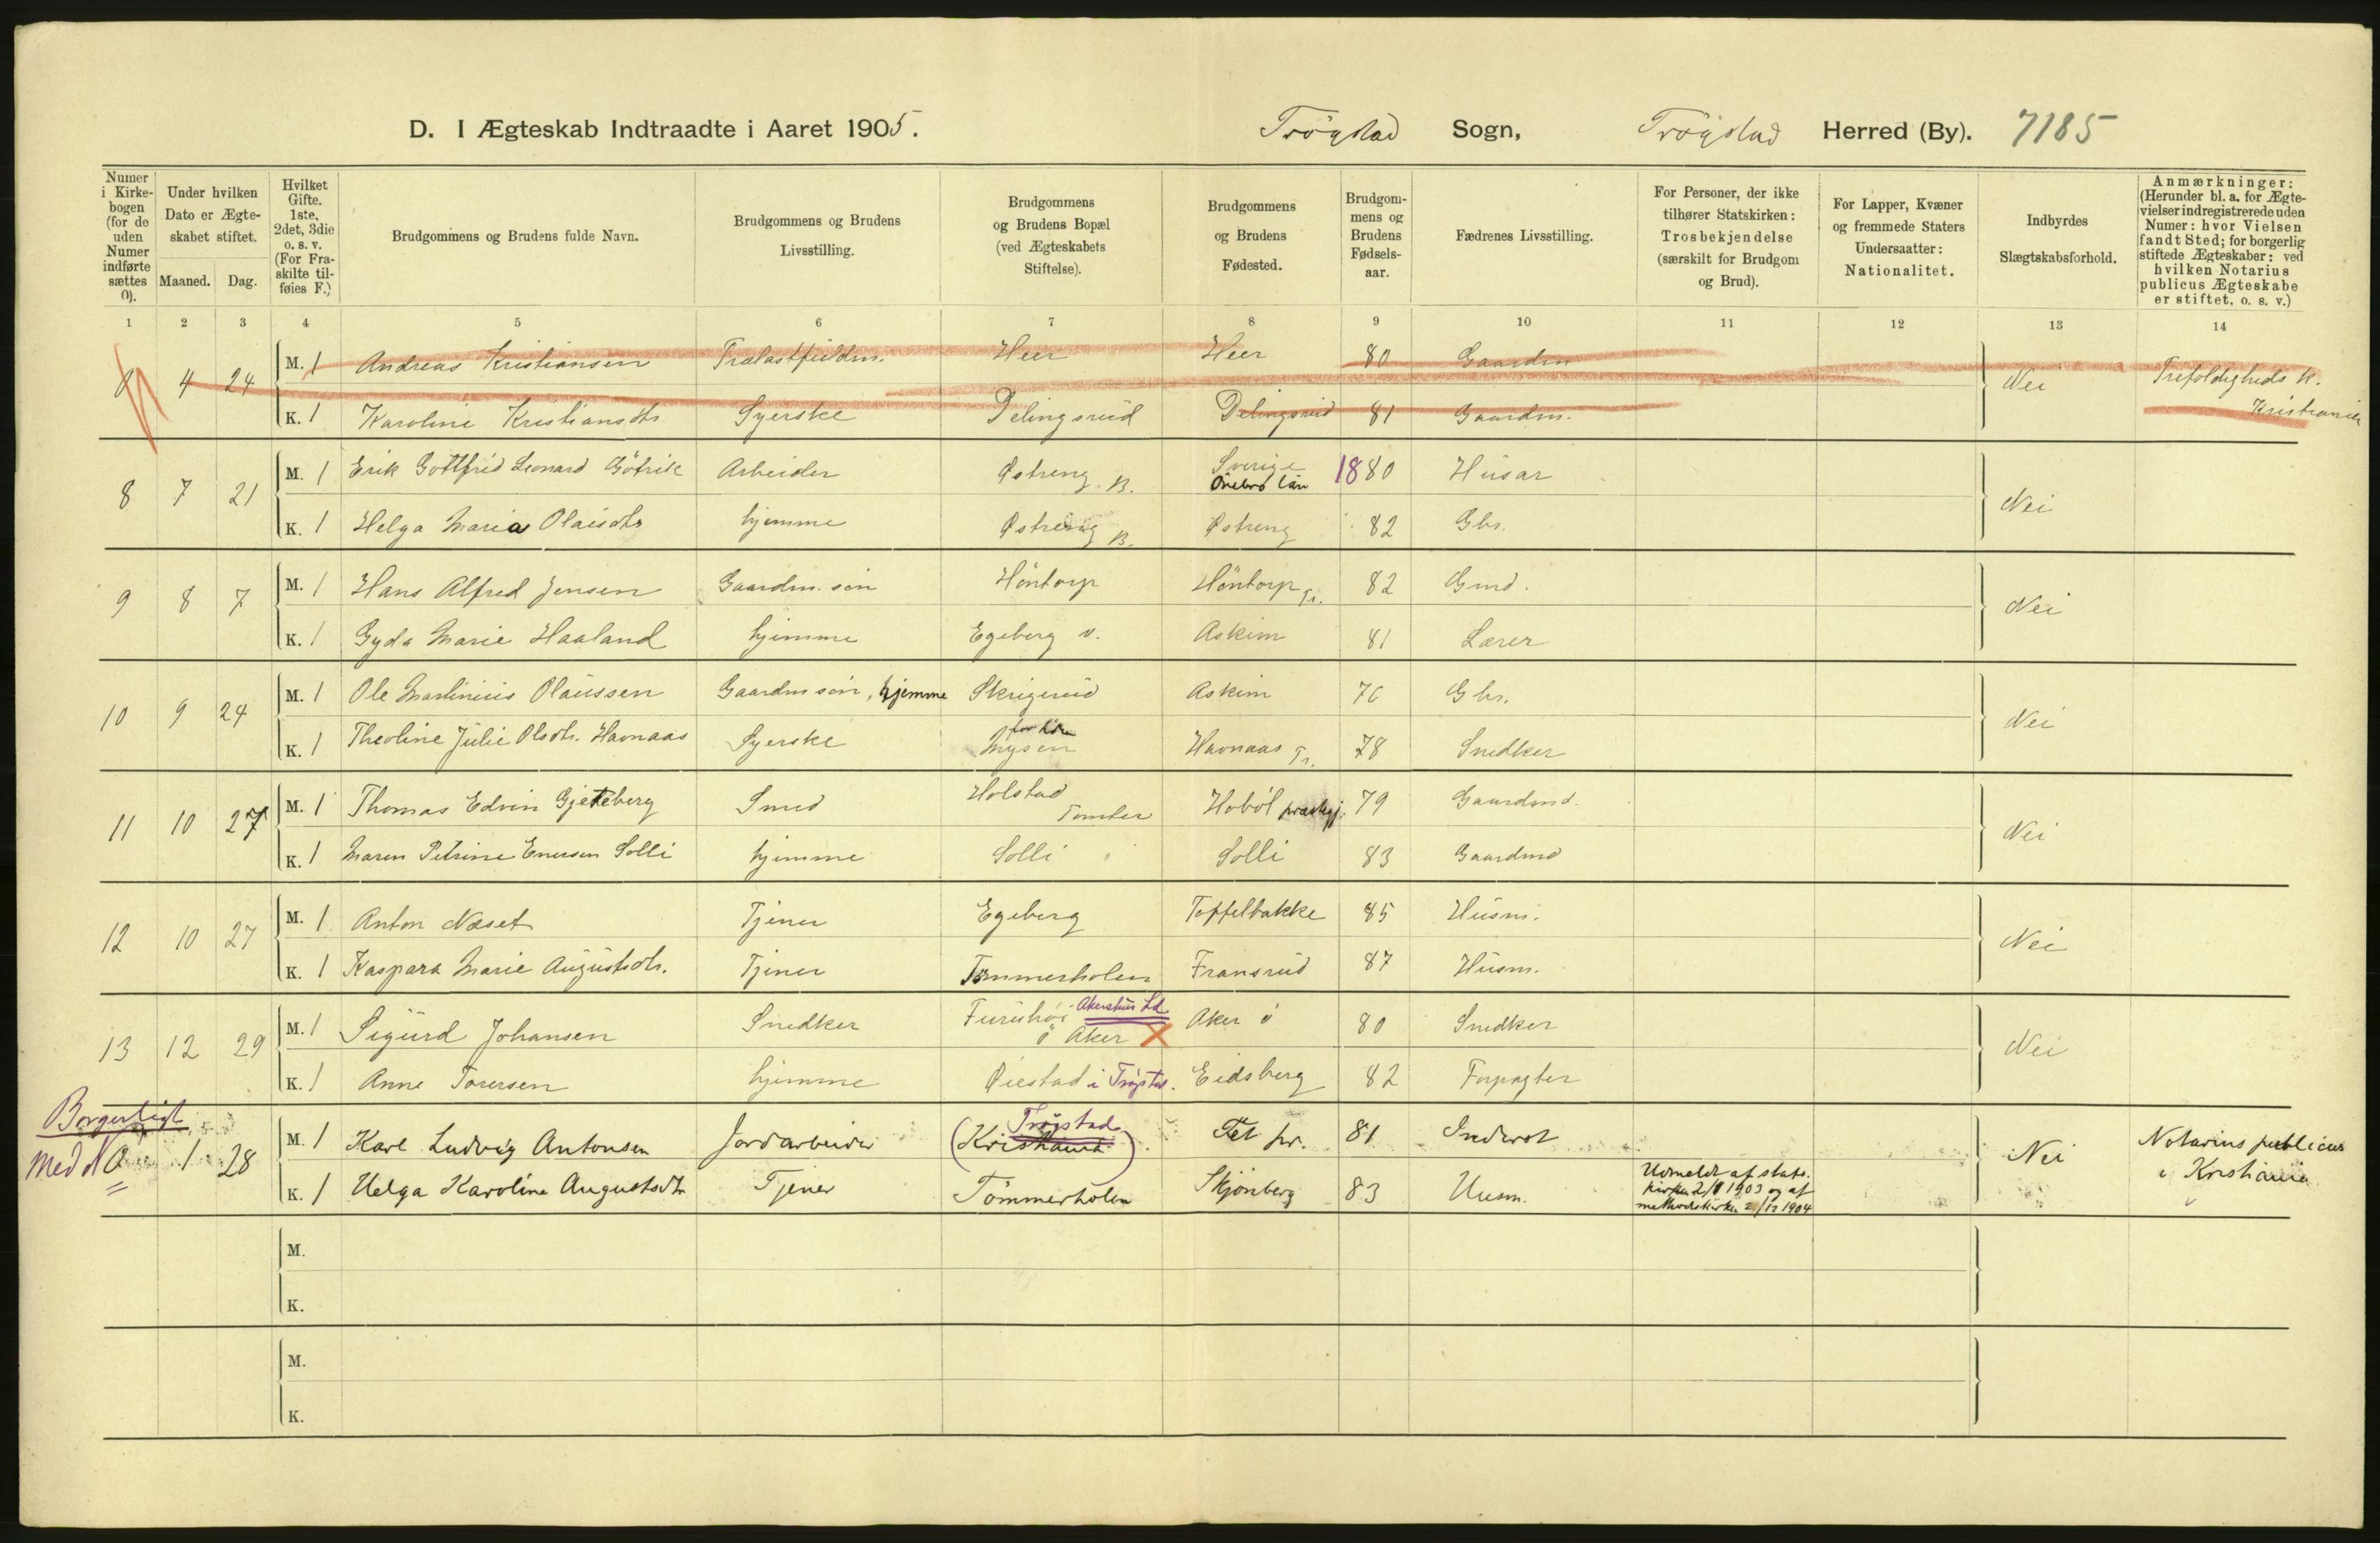 D. I Ægteskab Indtraadte i Aaret 1905. Trøgstad Sogn, Trøgstad Herred (By). 7185
Numer i Kirke-bogen (for de uden Numer indførte sættes 0).
Under hvilken Dato er Ægte-skabet stiftet.
Maaned. Dag.
Hvilket Gifte. 1ste, 2det, 3die o. s. v. (For Fra-skilte til-føies F.)
Brudgommens og Brudens fulde Navn.
Brudgommens og Brudens Livsstilling.
Brudgommens og Brudens Bopæl (ved Ægteskabets Stiftelse).
Brudgommens og Brudens Fødested.
Brudgom-mens og Brudens Fødsels-aar.
Fædrenes Livsstilling.
For Personer, der ikke tilhører Statskirken: Trosbekjendelse (særskilt for Brudgom og Brud).
For Lapper, Kvæner og fremmede Staters Undersaatter: Nationalitet.
Indbyrdes Slægtskabsforhold.
Anmærkninger: (Herunder bl. a. for Ægte-vielser indregistrerede uden Numer: hvor Vielsen fandt Sted; for borgerlig stiftede Ægteskaber: ved hvilken Notarius publicus Ægteskabe er stiftet, o. s. v.)
1 2 3 4 5 6 7 8 9 10 11 12 13 14
0 4 24 M. 1 Andreas Kristiansen Heer Heer 80 Gaardm Nei Trefoldigheds k. Kristiania
K. 1 Karoline Kristiansdtr Syerske Delingsrud Delingsrud 81 Gaardm.
8 7 21 M. 1 Erik Gottfrid Leonard Götrik Arbeider Østreng. B. Sverige Örebro län 1880 Husar Nei
K. 1 Helga Maria Olausdtr hjemme Østreng B. Østreng 82 Gbr.
9 8 7 M. 1 Hans Alfred Jensen Gaardm. søn Höntorp Höntorp Tr. 82 Gmd. Nei
K. 1 Gyda Marie Haaland hjemme Egeberg v. Askim 81 Lærer
10 9 24 M. 1 Ole Martinius Olaussen Gaardm søn, hjemme Skrigerud Askim 76 Gbr. Nei
K. 1 Theoline Julie Olsdtr. Havnaas Syerske Mysen Havnaas Tr. 78 Snedker
11 10 27 M. 1 Thomas Edvin Gjeteberg Smed Holstad Tomter Hobøl præstgj. 79 Gaardmd. Nei
K. 1 Maren Petrine Enersen Solli hjemme Solli Solli 83 Gaardmd
12 10 27 M. 1 Anton Næset Tjener Egeberg Toppelbakke 85 Husm. Nei
K. 1 Kaspara Marie Augustsdtr. Tjener Tømmerholen Fransrud 87 Husm.
13 12 29 M. 1 Sigurd Johansen Snedker Furuhøi Akershus Ld ö Aker X Aker ö 80 Snedker Nei
K. 1 Anne Torersen hjemme Øiestad i Trøgstad. Eidsberg 82 Forpagter
Borgerligt
med No 0 1 28 M. 1 Karl Ludvig Antonsen Jordarbeider Trøgstad (Kristiania) Fet pr. 81 Inderst Nei Notarius publicus i Kristiania
K. 1 Helga Karoline Augustsdtr Tjener Tömmerholen Skjönberg 83 Husm. Udmeldt af stats-kirken 2/1 1903 og af methodistkirken 2/12 1904
M.
K.
M.
K.